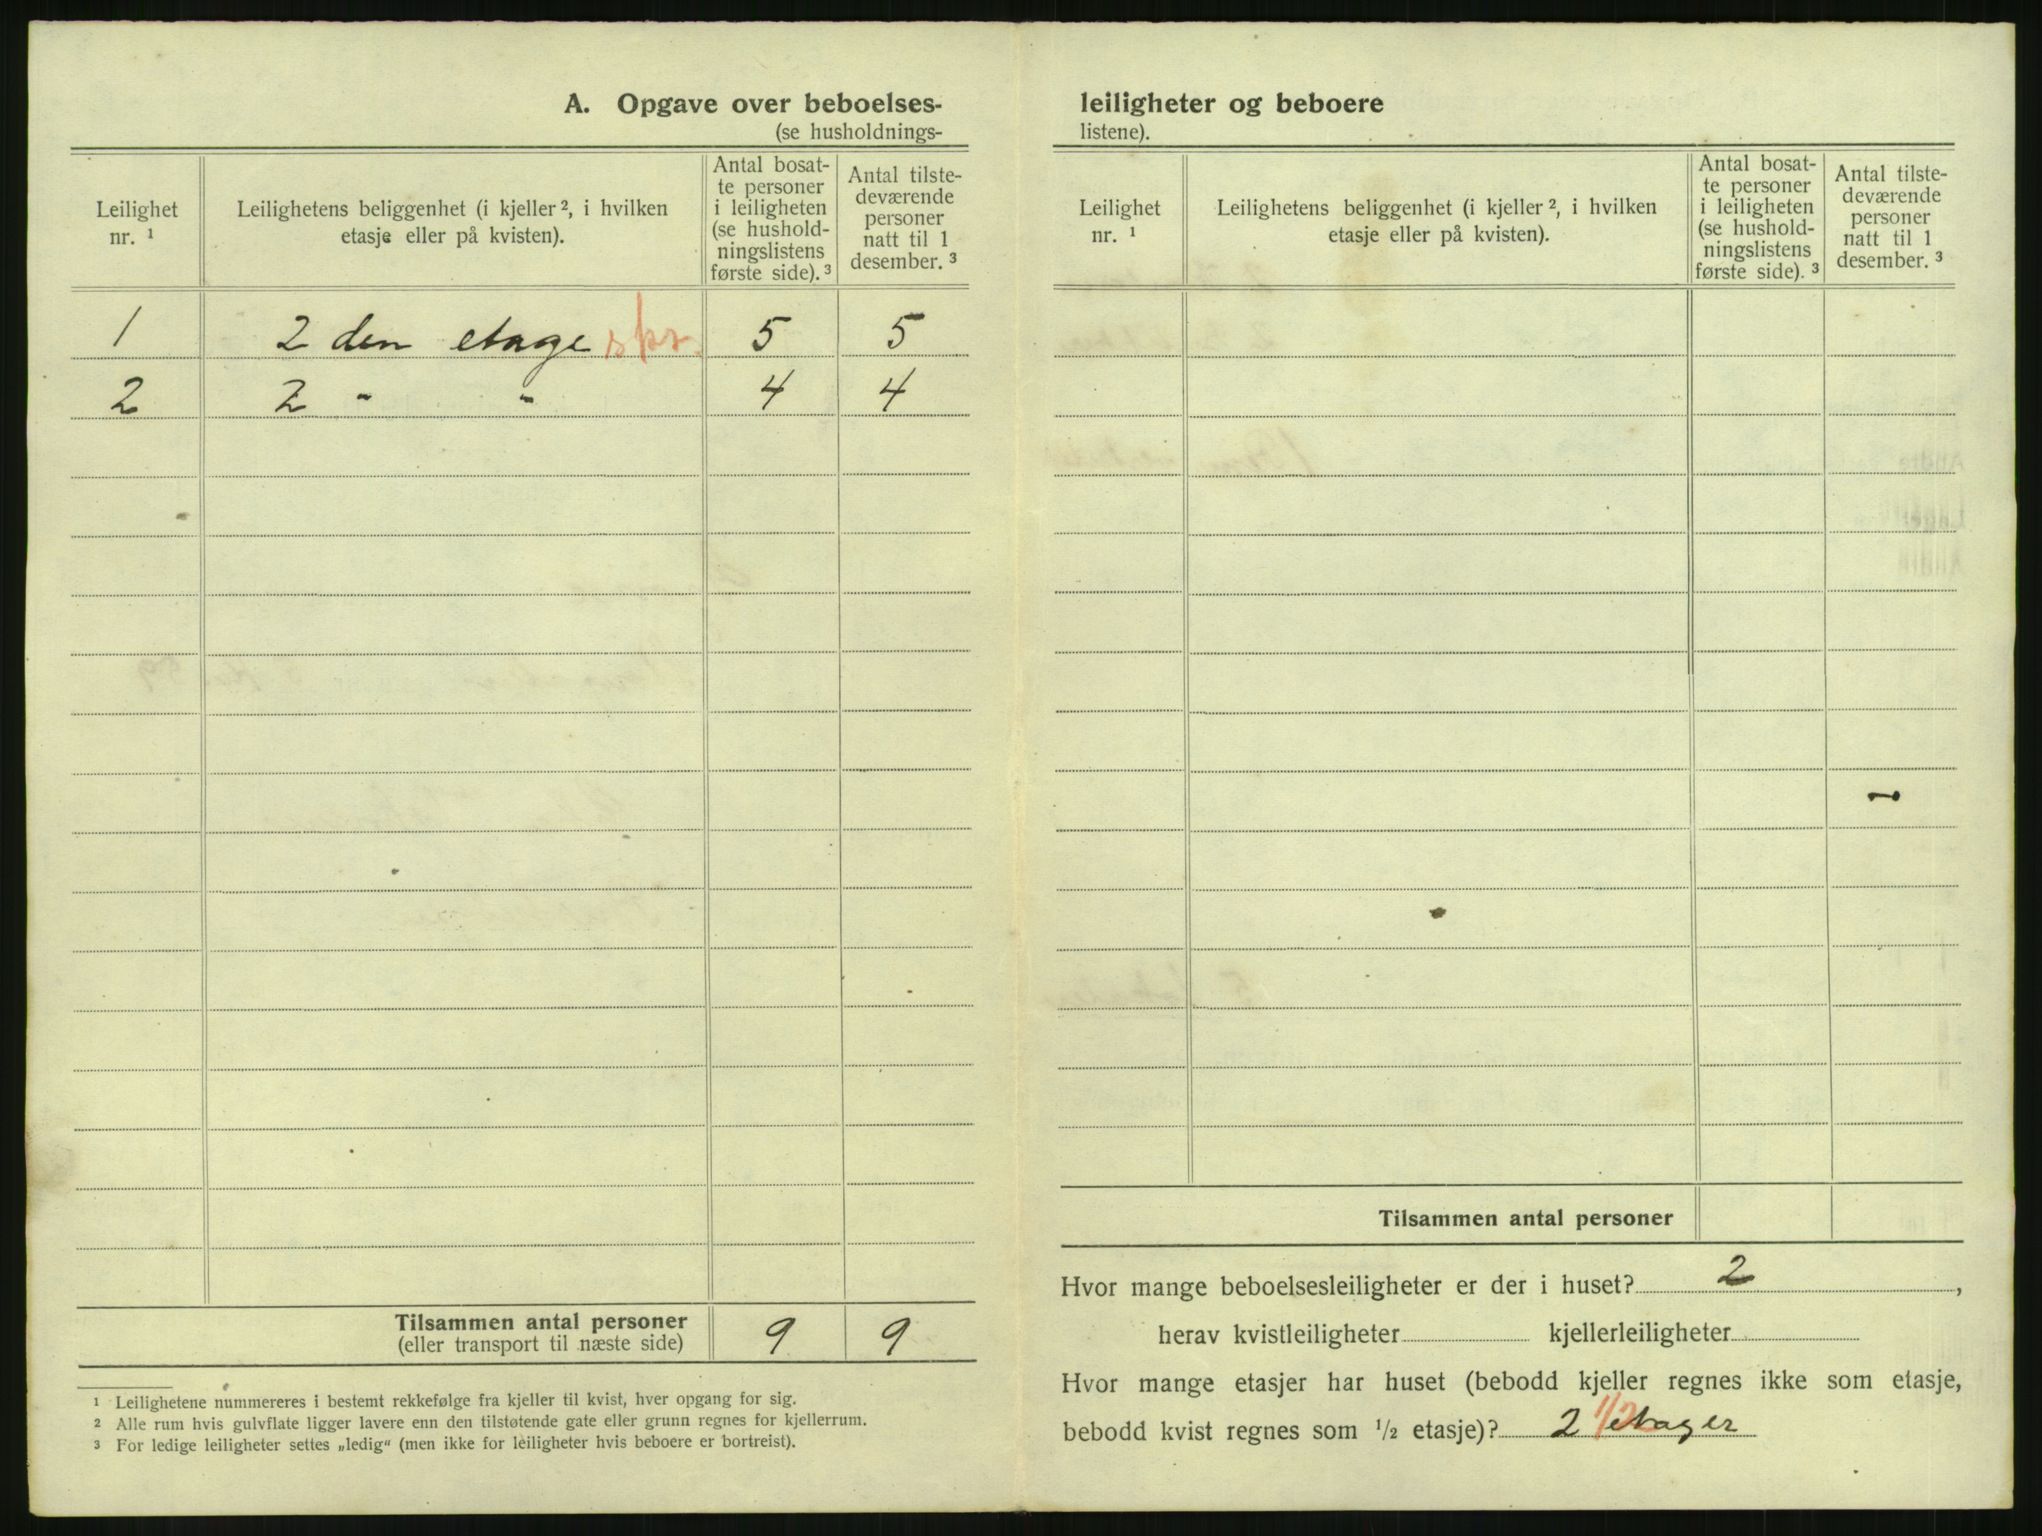 A. Opgave over beboelses-
(se husholdnings-
Leilighet nr. ¹
Leilighetens beliggenhet (i kjeller ², i hvilken etasje eller på kvisten).
Antal bosat-
te personer
i leiligheten
(se hushold-
ningslistens
første side). ³
Antal tilste-
deværende
personer
natt til 1
desember. ³
1 2 den etage 5 5
2 2 " " 4 4
Tilsammen antal personer 9 9
(eller transport til næste side)
¹ Leilighetene nummereres i bestemt rekkefølge fra kjeller til kvist, hver opgang for sig.
² Alle rum hvis gulvflate ligger lavere enn den tilstøtende gate eller grunn regnes for kjellerrum.
³ For ledige leiligheter settes „ledig“ (men ikke for leiligheter hvis beboere er bortreist).
leiligheter og beboere
listene).
Leilighet nr. ¹
Leilighetens beliggenhet (i kjeller ², i hvilken etasje eller på kvisten).
Antal bosat-
te personer
i leiligheten
(se hushold-
ningslistens
første side). ³
Antal tilste-
deværende
personer
natt til 1
desember. ³
Tilsammen antal personer
Hvor mange beboelsesleiligheter er der i huset? 2 ,
herav kvistleiligheter kjellerleiligheter
Hvor mange etasjer har huset (bebodd kjeller regnes ikke som etasje,
bebodd kvist regnes som ½ etasje)? 2 1/2 etager